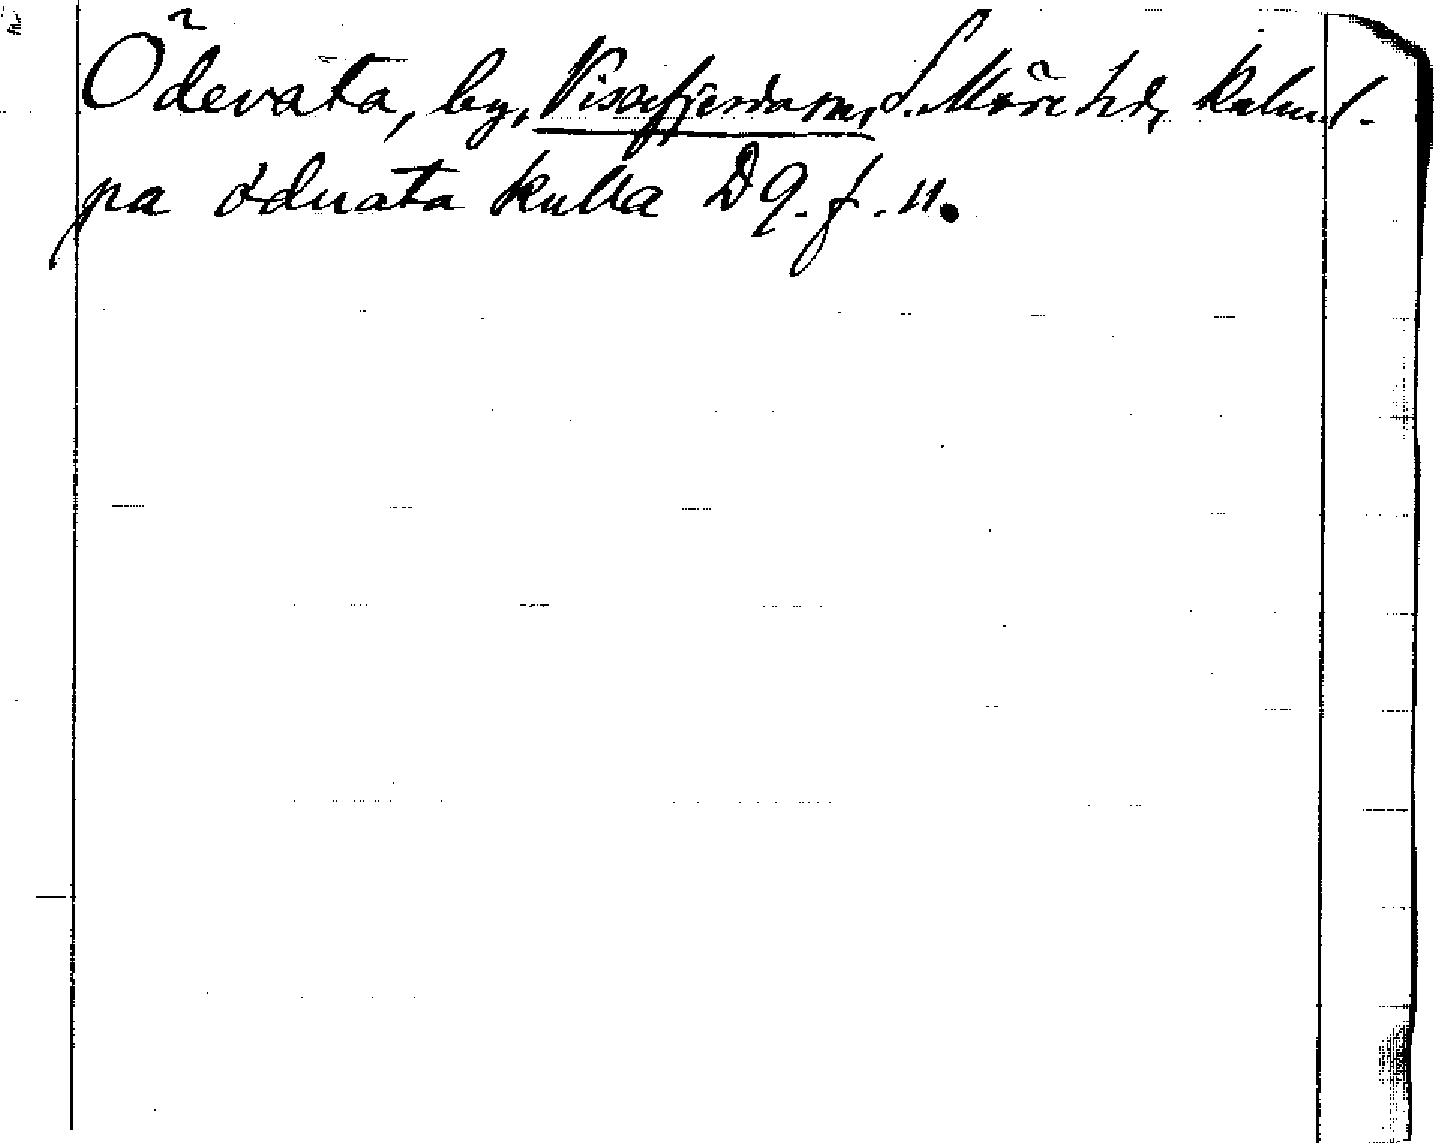 Ödevata, by, Vissefjerda sn, S. Möre hd, Kalm. l.
pa öduata kulla D 9. f. 11.